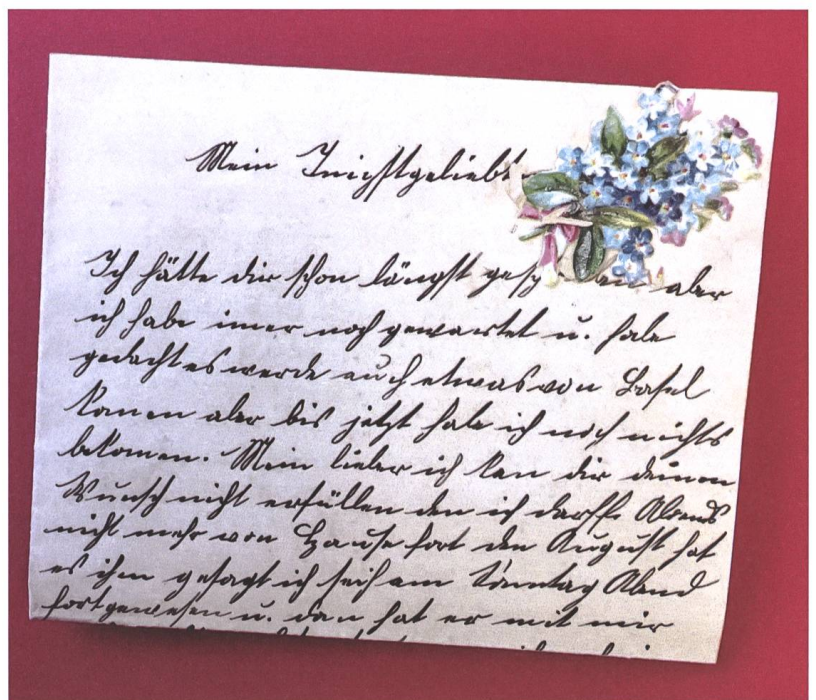 Mein Innigstgeliebt
Ich hätte dir schon längst gesch an aber
ich habe imer noch gewartet u. habe
gedacht es werde auch etwas von Basel
komen aber bis jetzt habe ich noch nichts
bekomen. Mein lieber ich kan dir deinen
Wunsch nicht erfüllen den ich darffe Abends
nicht mehr von Hause fort den August hat
es ihm gesagt ich seih am Sonntag Abend
fortgewesen u. dan hat er mit mir